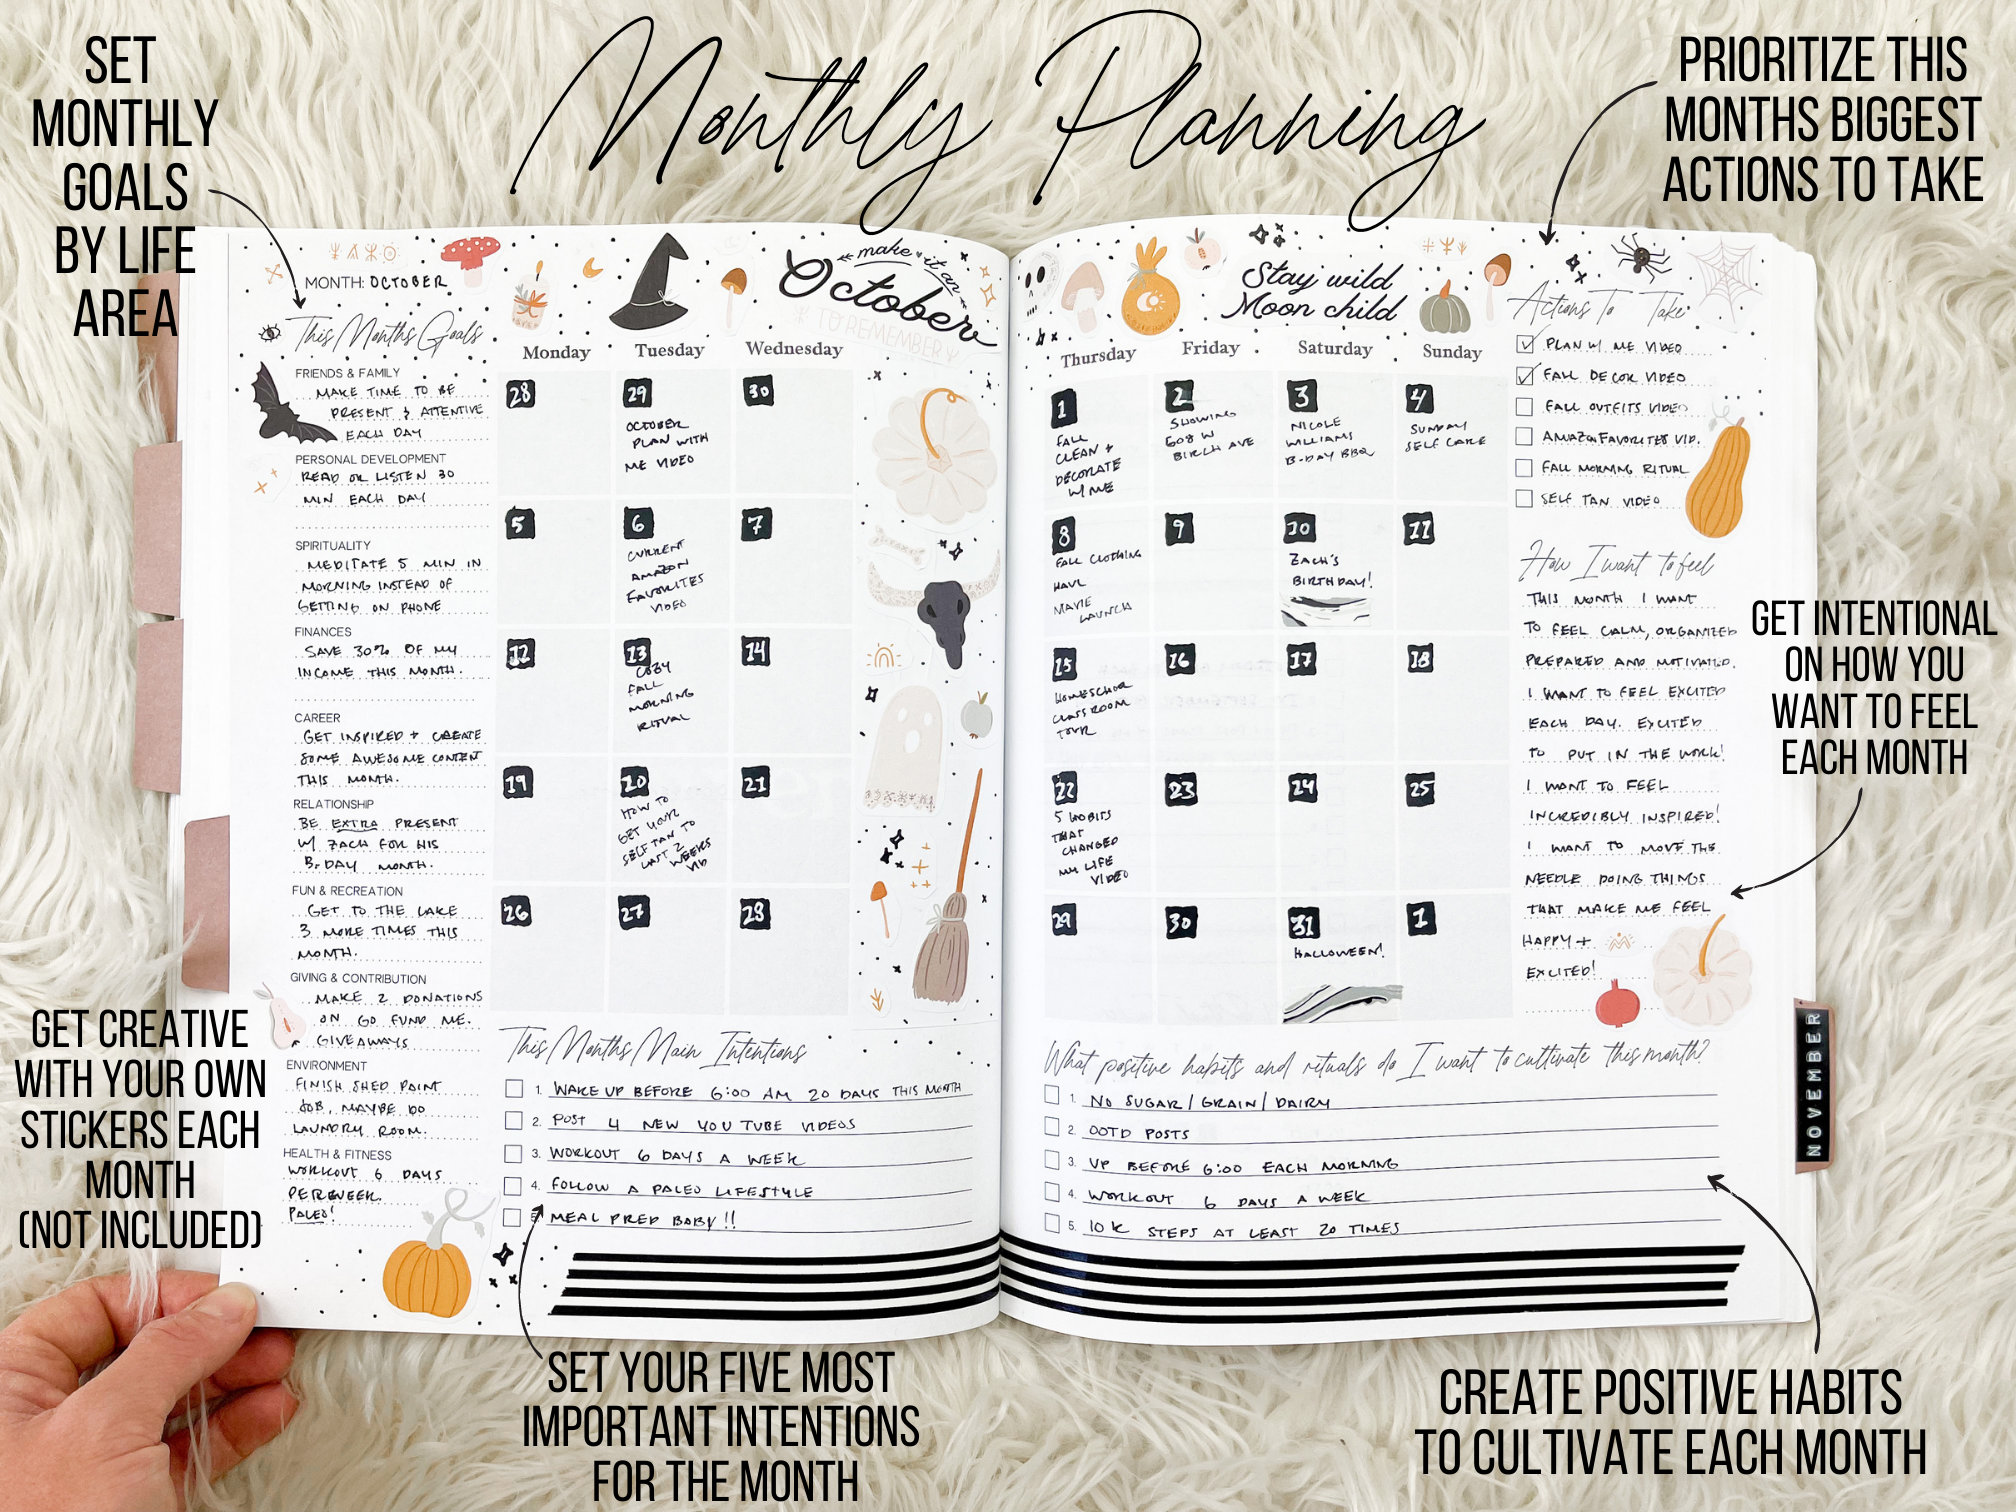 Monthly Planning
SET
MONTHLY
GOALS
BY LIFE
AREA
PRIORITIZE THIS
MONTHS BIGGEST
ACTIONS TO TAKE
GET INTENTIONAL
ON HOW YOU
WANT TO FEEL
EACH MONTH
GET CREATIVE
WITH YOUR OWN
STICKERS EACH
MONTH
(NOT INCLUDED)
SET YOUR FIVE MOST
IMPORTANT INTENTIONS
FOR THE MONTH
CREATE POSITIVE HABITS
TO CULTIVATE EACH MONTH
MONTH: OCTOBER
This Months Goals
FRIENDS & FAMILY
MAKE TIME TO BE
PRESENT & ATTENTIVE
EACH DAY
PERSONAL DEVELOPMENT
READ OR LISTEN 30
MIN EACH DAY
SPIRITUALITY
MEDITATE 5 MIN IN
MORNING INSTEAD OF
GETTING ON PHONE
FINANCES
SAVE 30% OF MY
INCOME THIS MONTH.
CAREER
GET INSPIRED + CREATE
SOME AWESOME CONTENT
THIS MONTH.
RELATIONSHIP
BE EXTRA PRESENT
W/ ZACH FOR HIS
B-DAY MONTH.
FUN & RECREATION
GET TO THE LAKE
3 MORE TIMES THIS
MONTH.
GIVING & CONTRIBUTION
MAKE 2 DONATIONS
ON GO FUND ME.
GIVEAWAYS
ENVIRONMENT
FINISH SHED PAINT
JOB, MAYBE DO
LAUNDRY ROOM.
HEALTH & FITNESS
WORKOUT 6 DAYS
PER WEEK.
PALEO!
make it an
October
TO REMEMBER
Stay wild
Moon child
Monday Tuesday Wednesday Thursday Friday Saturday Sunday
28 29 30 1 2 3 4
OCTOBER
PLAN WITH
ME VIDEO
FALL
CLEAN +
DECORATE
W/ ME
SHOWING
608 W
BIRCH AVE
NICOLE
WILLIAMS
B-DAY BBQ
SUNDAY
SELF CARE
5 6 7 8 9 10 11
CURRENT
AMAZON
FAVORITES
VIDEO
FALL CLOTHING
HAUL
MAVIE
LAUNCH
ZACH'S
BIRTHDAY!
12 13 14 15 16 17 18
COZY
FALL
MORNING
RITUAL
HOMESCHOOL
CLASSROOM
TOUR
19 20 21 22 23 24 25
HOW TO
GET YOUR
SELF TAN TO
LAST 2
WEEKS
VID
5 HABITS
THAT
CHANGED
MY LIFE
VIDEO
26 27 28 29 30 31 1
HALLOWEEN!
Actions To Take
PLAN W/ ME VIDEO
FALL DECOR VIDEO
FALL OUTFITS VIDEO
AMAZON FAVORITES VID.
FALL MORNING RITUAL
SELF TAN VIDEO
How I want to feel
THIS MONTH I WANT
TO FEEL CALM, ORGANIZED
PREPARED AND MOTIVATED.
I WANT TO FEEL EXCITED
EACH DAY. EXCITED
TO PUT IN THE WORK!
I WANT TO FEEL
INCREDIBLY INSPIRED!
I WANT TO MOVE THE
NEEDLE DOING THINGS
THAT MAKE ME FEEL
HAPPY +
EXCITED!
This Months Main Intentions
1. WAKE UP BEFORE 6:00 AM 20 DAYS THIS MONTH
2. POST 4 NEW YOUTUBE VIDEOS
3. WORKOUT 6 DAYS A WEEK
4. FOLLOW A PALEO LIFESTYLE
MEAL PREP BABY!!
What positive habits and rituals do I want to cultivate this month?
1. NO SUGAR / GRAIN / DAIRY
2. OOTD POSTS
3. UP BEFORE 6:00 EACH MORNING
4. WORKOUT 6 DAYS A WEEK
5. 10K STEPS AT LEAST 20 TIMES
NOVEMBER